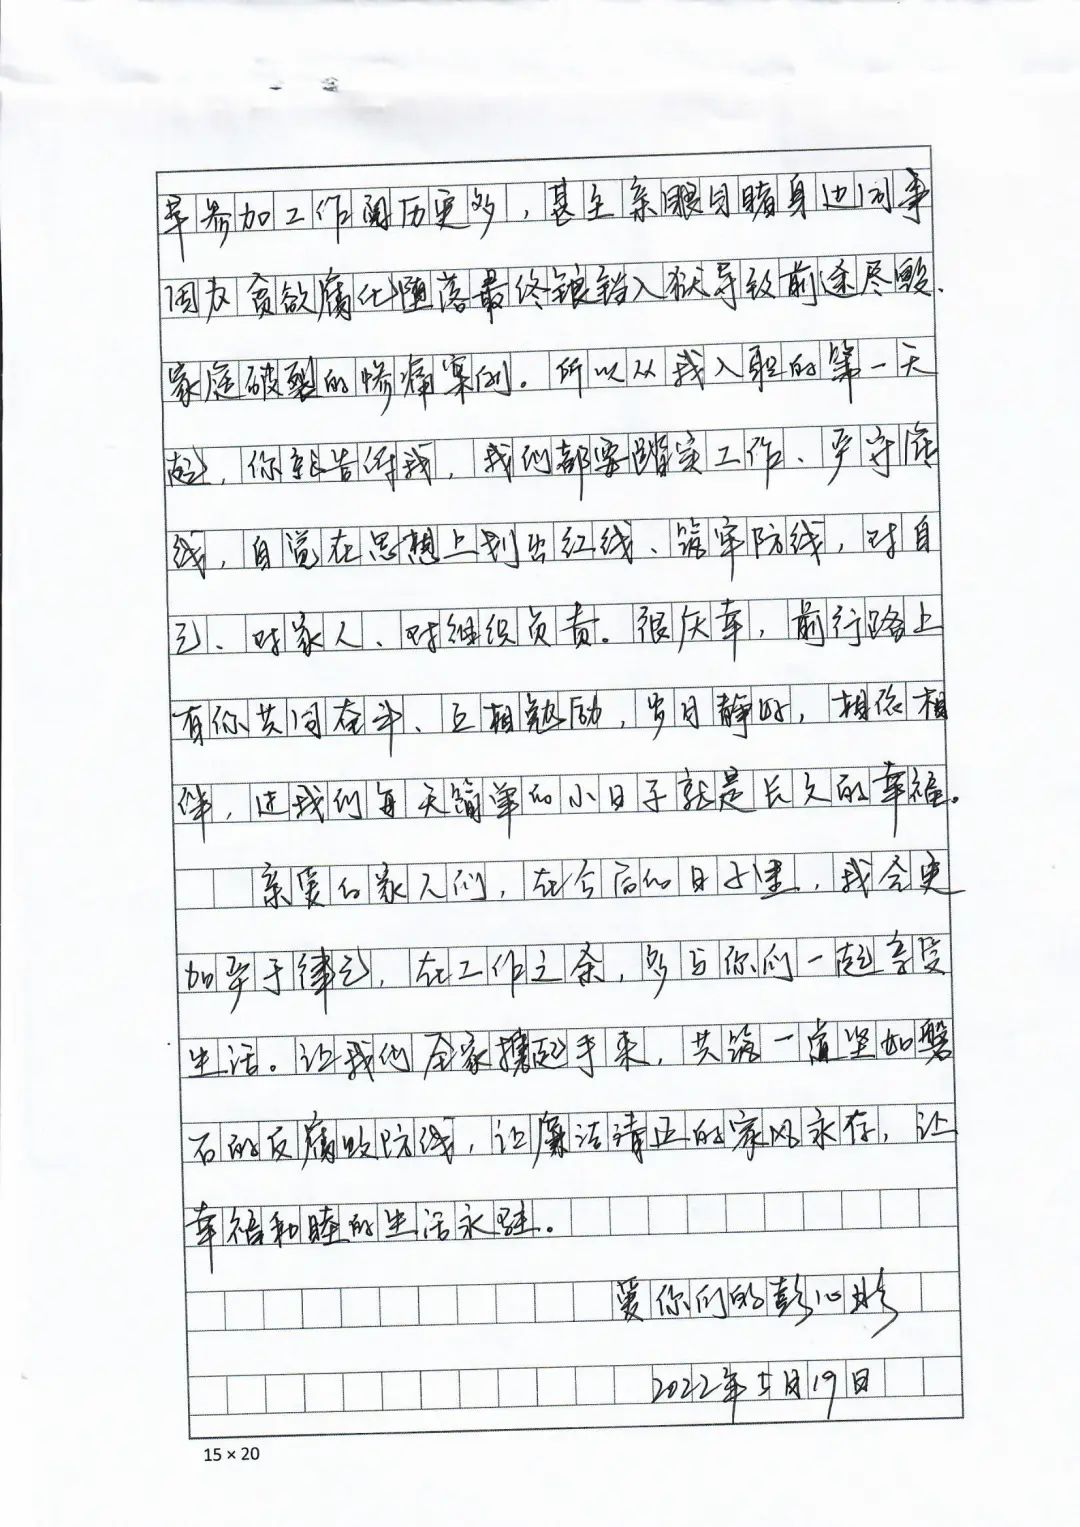 早参加工作阅历更多，甚至亲眼目睹身边同事
因为贪欲腐化堕落最终锒铛入狱导致前途尽毁、
家庭破裂的惨痛案例。所以从我入职的第一天
起，你就告诉我，我们都要踏实工作、严守底
线，自觉在思想上划出红线、筑牢防线，对自
己、对家人、对组织负责。很庆幸，前行路上
有你共同奋斗、互相勉励，岁月静好，相依相
伴，过我们每天简单的小日子就是长久的幸福。
亲爱的家人们，在今后的日子里，我会更
加严于律己，在工作之余，多与你们一起享受
生活。让我们全家携起手来，共筑一道坚如磐
石的反腐败防线，让廉洁清正的家风永存，让
幸福和睦的生活永驻。
爱你们的彭心
2022年5月19日
15×20